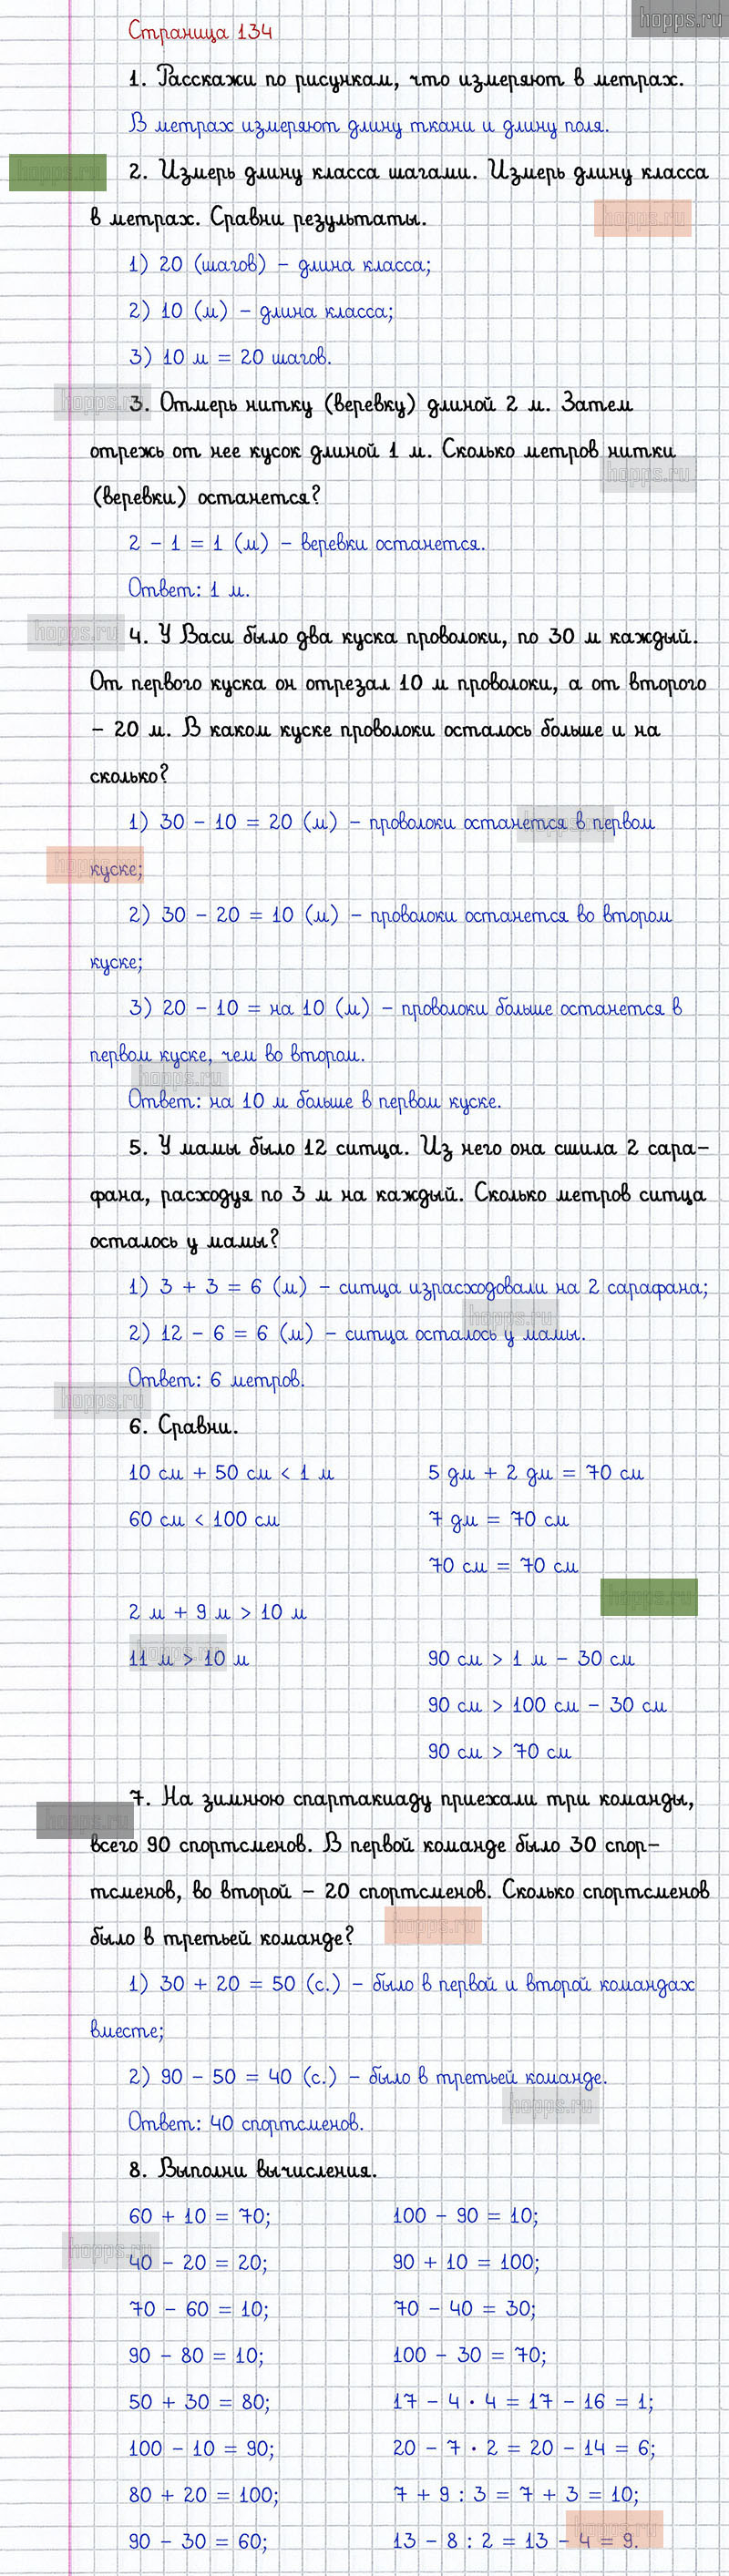 hopps.ru
Страница 134
1. Расскажи по рисункам, что измеряют в метрах.
В метрах измеряют длину ткани и длину поля.
hopps.ru
2. Измерь длину класса шагами. Измерь длину класса
в метрах. Сравни результаты.
hopps.ru
1) 20 (шагов) – длина класса;
2) 10 (м) – длина класса;
3) 10 м = 20 шагов.
hopps.ru
3. Отмерь нитку (веревку) длиной 2 м. Затем
отрежь от нее кусок длиной 1 м. Сколько метров нитки
hopps.ru
(веревки) останется?
2 – 1 = 1 (м) – веревки останется.
Ответ: 1 м.
hopps.ru
4. У Васи было два куска проволоки, по 30 м каждый.
От первого куска он отрезал 10 м проволоки, а от второго
– 20 м. В каком куске проволоки осталось больше и на
сколько?
1) 30 – 10 = 20 (м) – проволоки останется в первом
hopps.ru
куске;
hopps.ru
2) 30 – 20 = 10 (м) – проволоки останется во втором
куске;
3) 20 – 10 = на 10 (м) – проволоки больше останется в
первом куске, чем во втором.
hopps.ru
Ответ: на 10 м больше в первом куске.
5. У мамы было 12 ситца. Из него она сшила 2 сара–
фана, расходуя по 3 м на каждый. Сколько метров ситца
осталось у мамы?
1) 3 + 3 = 6 (м) – ситца израсходовали на 2 сарафана;
hopps.ru
2) 12 – 6 = 6 (м) – ситца осталось у мамы.
Ответ: 6 метров.
hopps.ru
6. Сравни.
10 см + 50 см < 1 м
5 дм + 2 дм = 70 см
60 см < 100 см
7 дм = 70 см
70 см = 70 см
hopps.ru
2 м + 9 м > 10 м
hopps.ru
11 м > 10 м
90 см > 1 м – 30 см
90 см > 100 см – 30 см
90 см > 70 см
7. На зимнюю спартакиаду приехали три команды,
hopps.ru
всего 90 спортсменов. В первой команде было 30 спор–
тсменов, во второй – 20 спортсменов. Сколько спортсменов
hopps.ru
было в третьей команде?
1) 30 + 20 = 50 (с.) – было в первой и второй командах
вместе;
2) 90 – 50 = 40 (с.) – было в третьей команде.
hopps.ru
Ответ: 40 спортсменов.
8. Выполни вычисления.
60 + 10 = 70;
100 – 90 = 10;
hopps.ru
40 – 20 = 20;
90 + 10 = 100;
70 – 60 = 10;
70 – 40 = 30;
90 – 80 = 10;
100 – 30 = 70;
50 + 30 = 80;
17 – 4 · 4 = 17 – 16 = 1;
100 – 10 = 90;
20 – 7 · 2 = 20 – 14 = 6;
80 + 20 = 100;
7 + 9 : 3 = 7 + 3 = 10;
hopps.ru
90 – 30 = 60;
13 – 8 : 2 = 13 – 4 = 9.